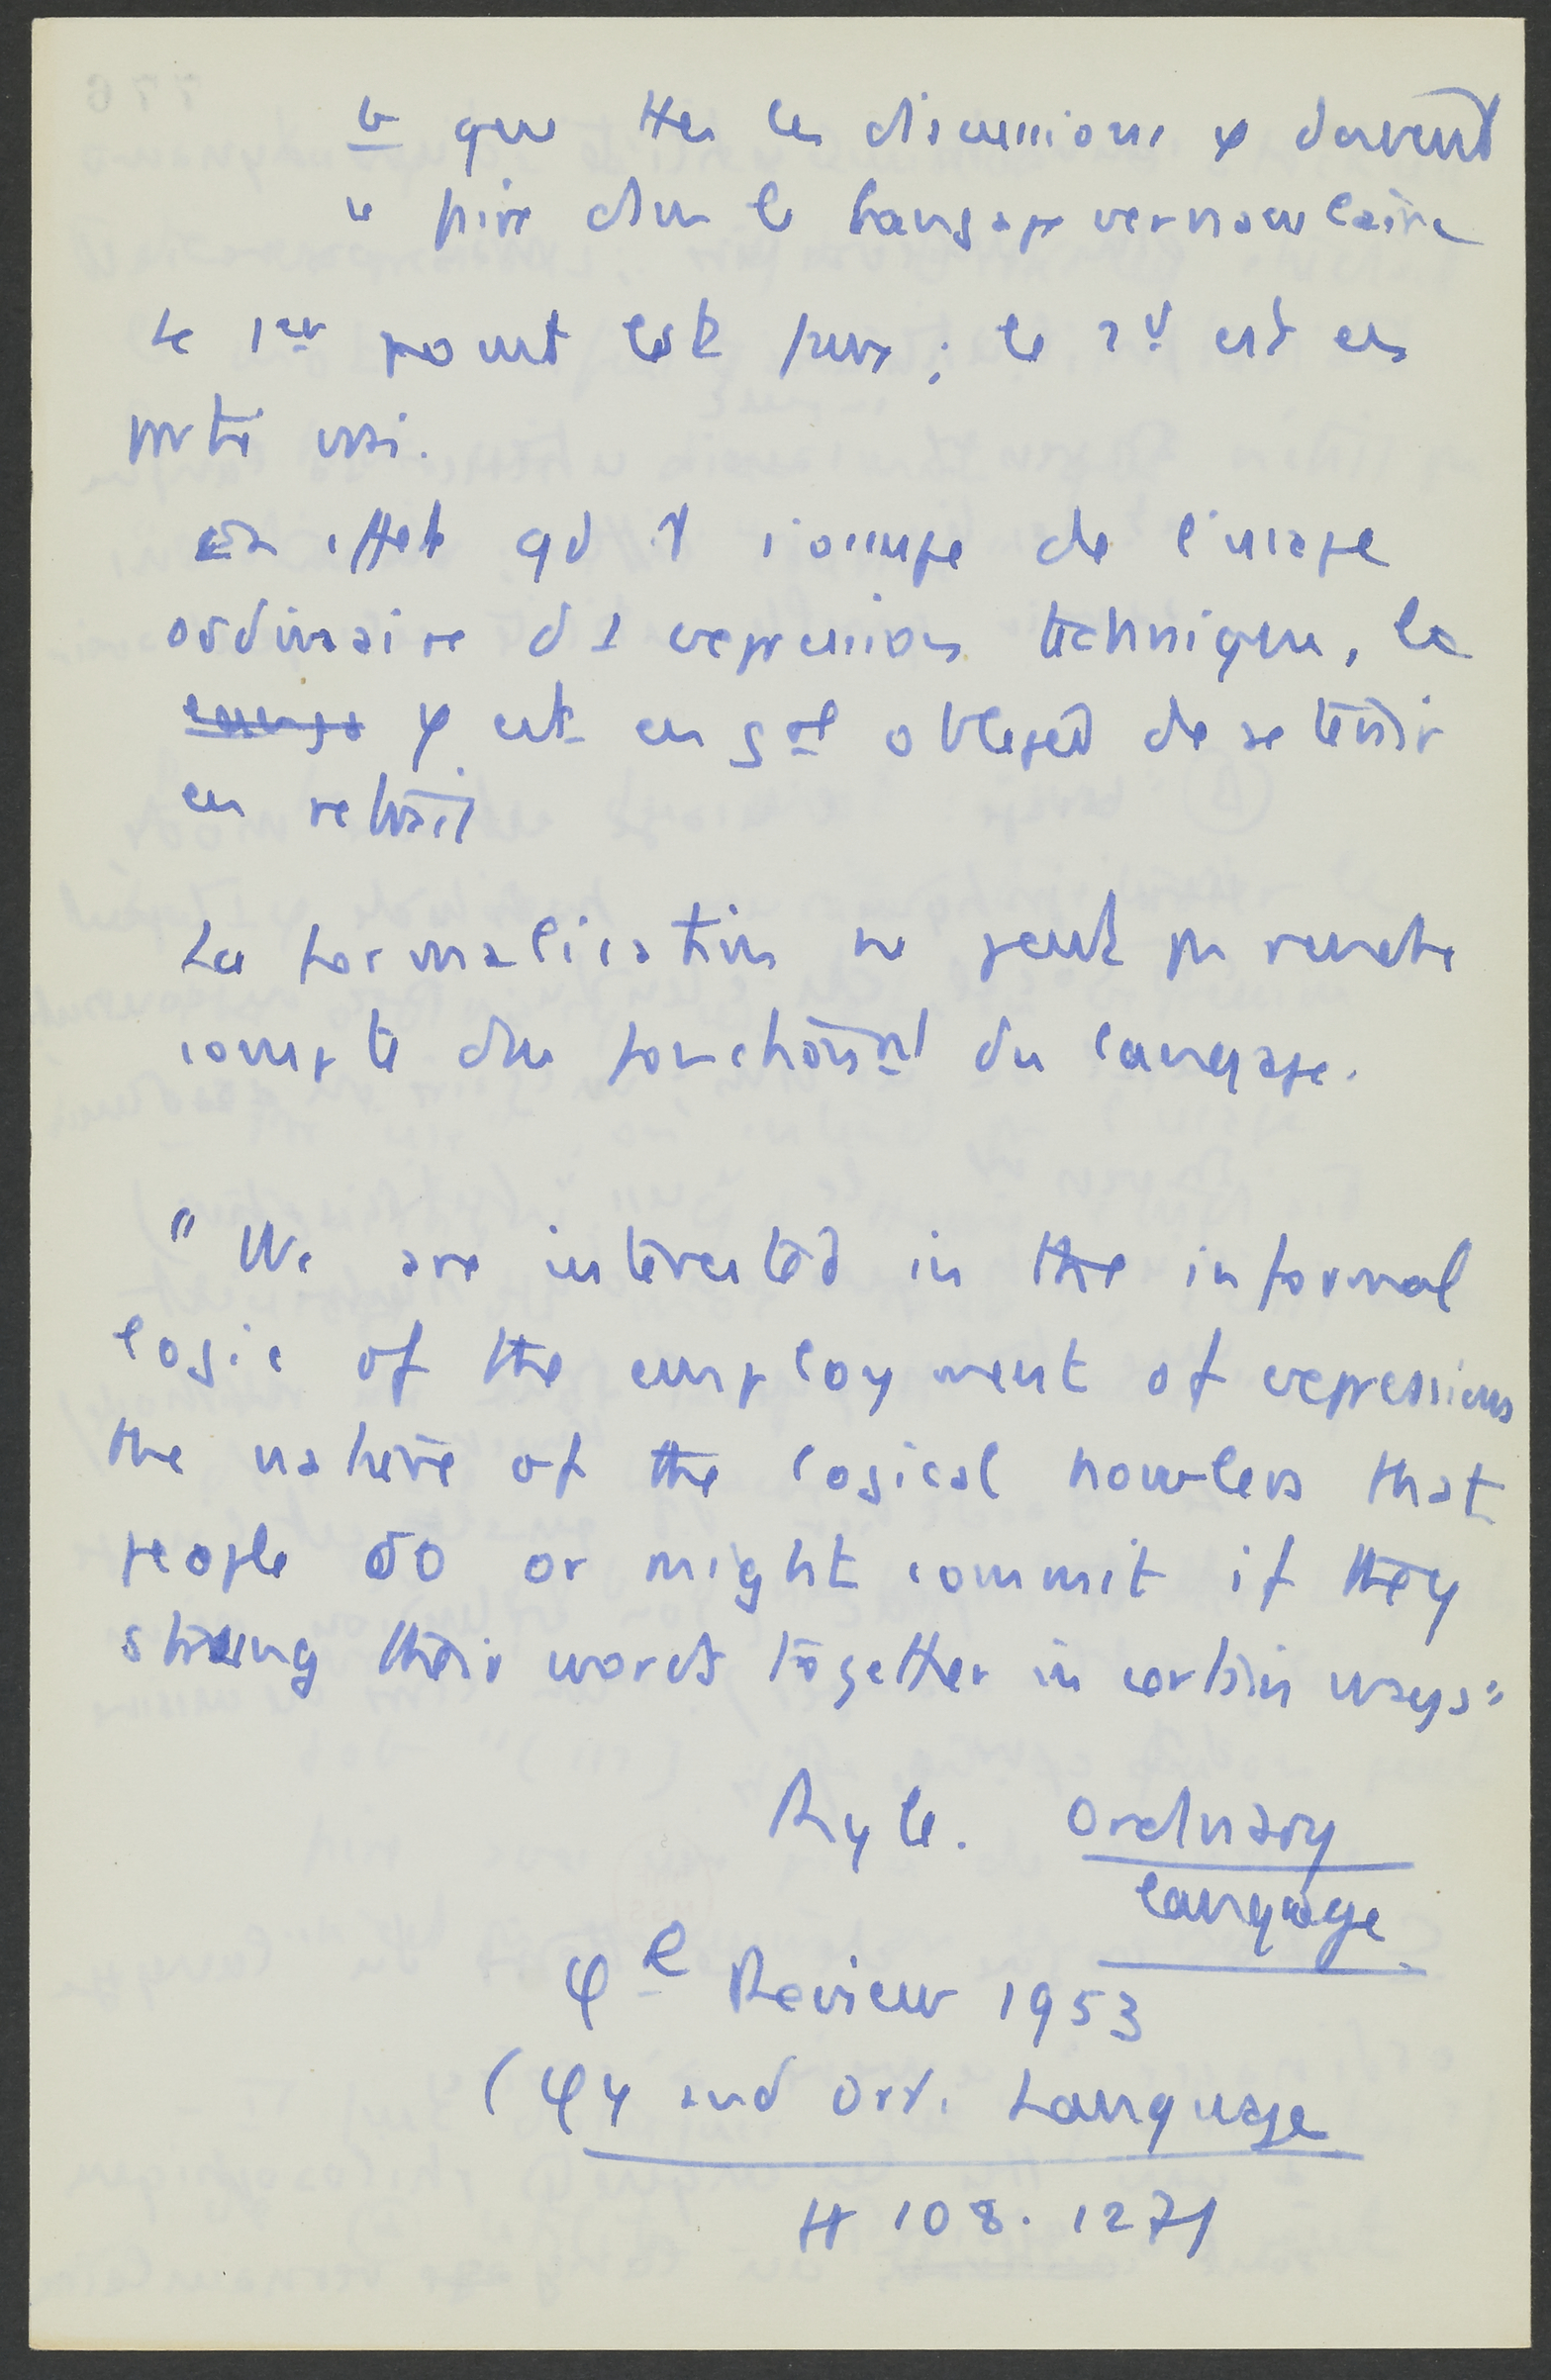 b que ttes les discussions φ doivent
se faire dans le langage vernaculaire
Le 1er point est faux ; le 2d est en
partie vrai.
En effet qd il s'occupe de l'usage
ordinaire d'1 expression technique, le
φ est en gal obliged de se tenir
en retrait
La formalisation ne peut pas rendre
compte du fonctionnnt du langage.
" We are interested in the informal
logic of the employment of expressions
the nature of the logical howlers that
people do or might commit if they
strung their words together in certain ways"
Ryle. Ordinary
language
φl Review 1953
(φy and Ord. Language
108. 127)